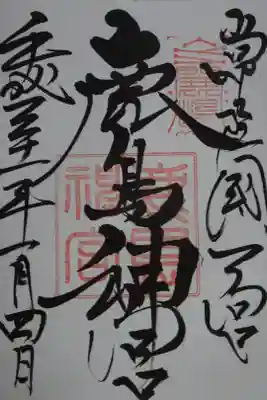 常陸國一宮
鹿島神宮
平成十一年一月四日
鹿島神宮